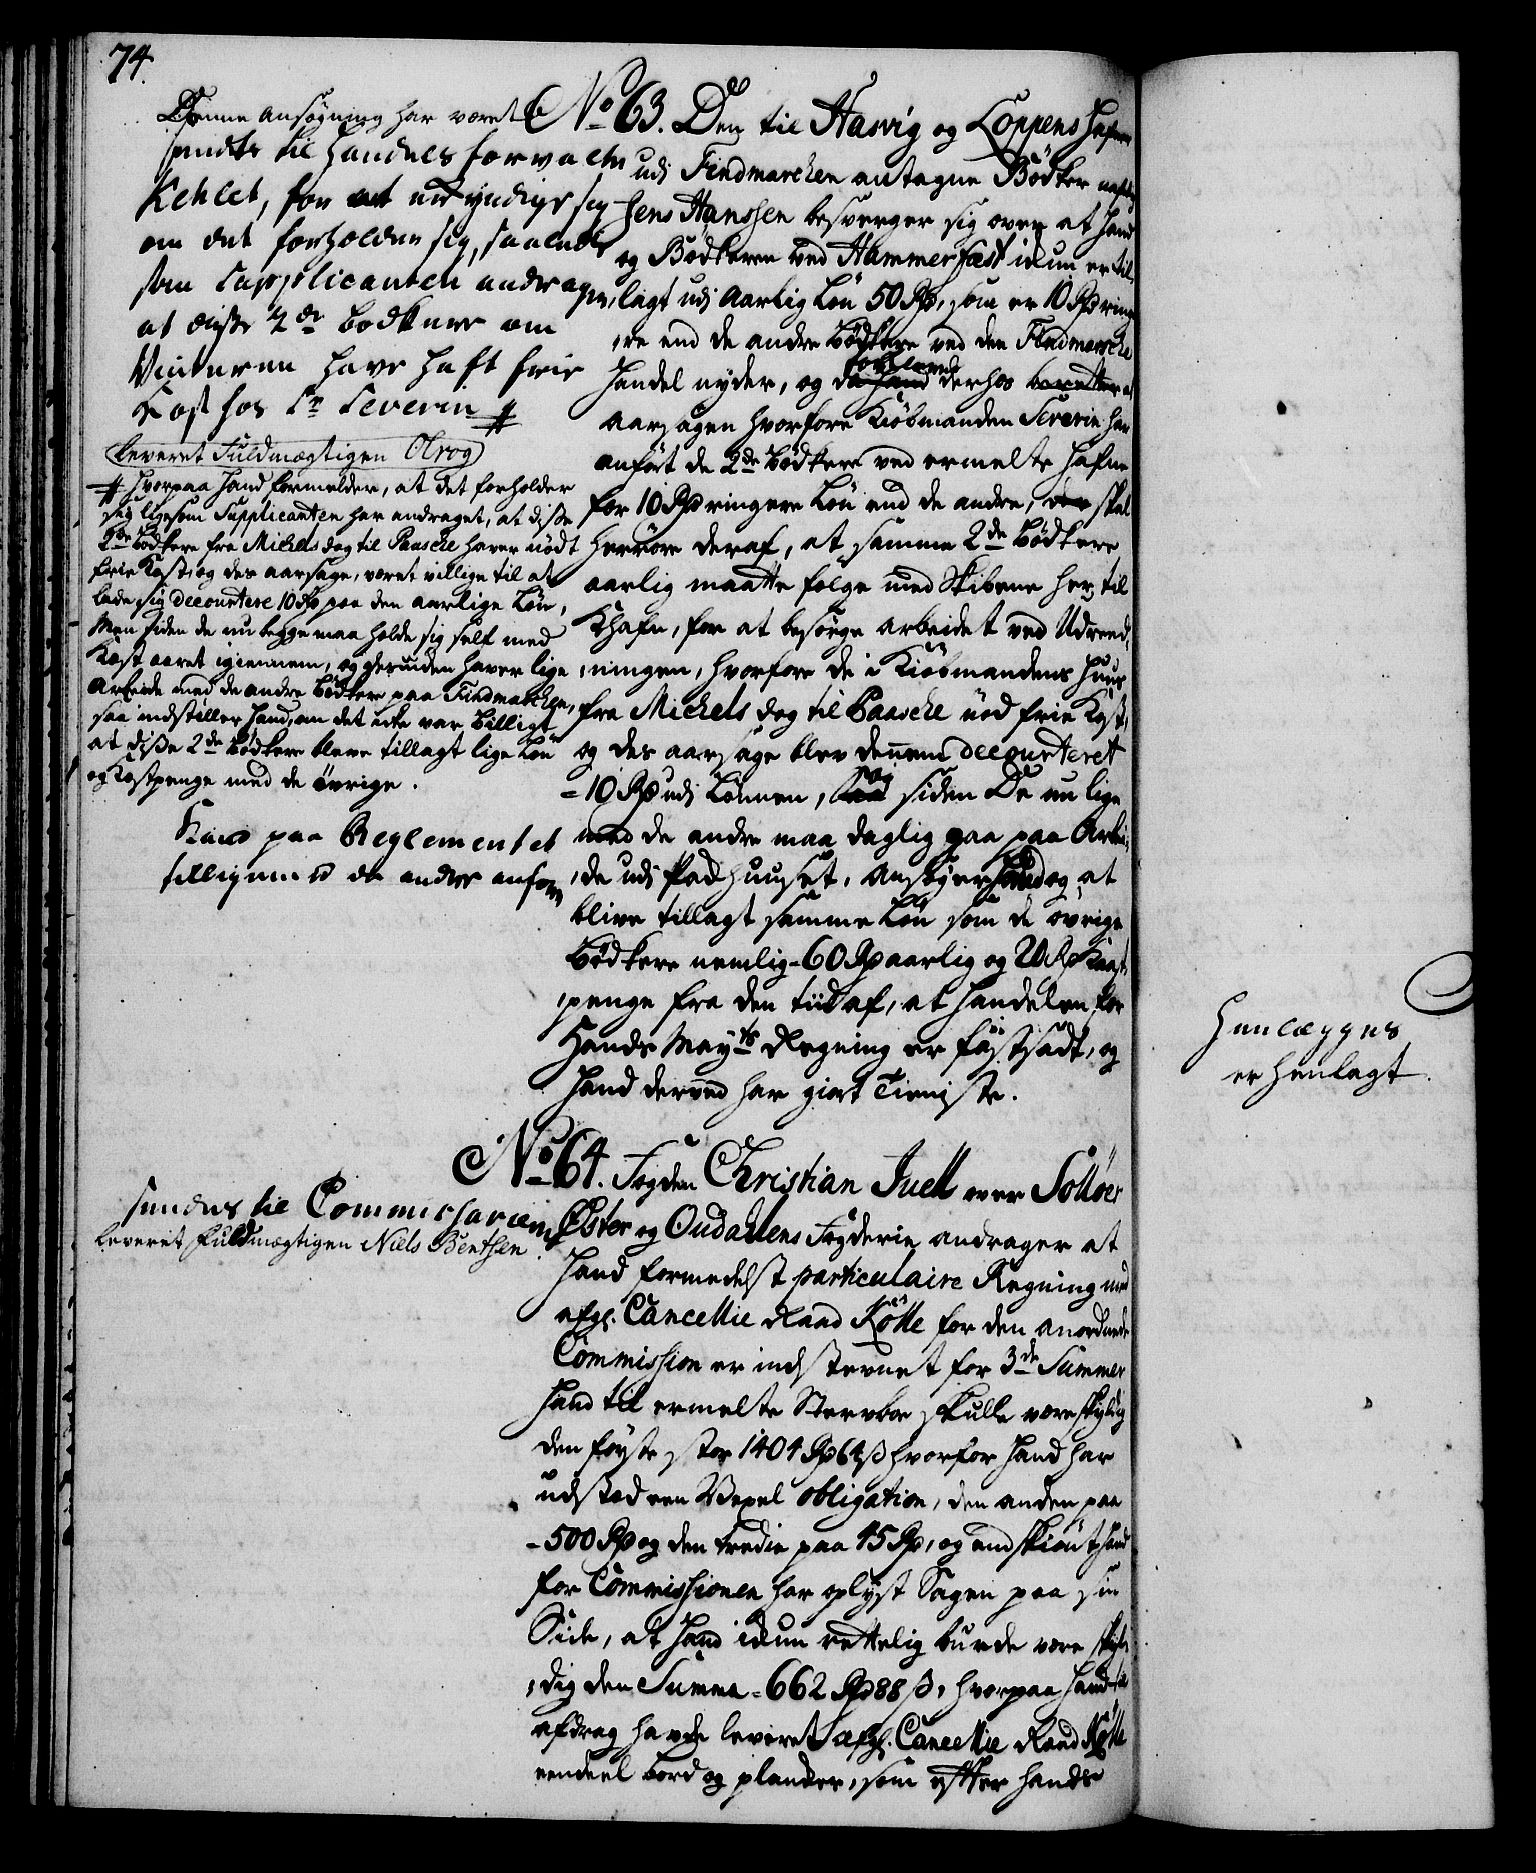 74.
Denne ansøgning har været
sendt til Handels forvalter
Kehlet, for at udtyndige sig
om det forholder sig, saaledes
som Supplicanten andrager,
at disse 2de bødkere om
Vinteren have haft frie
Kost hos Sr Severin #
Leveret Fuldmægtigen Olrog
# hvorpaa Hand formelder, at det forholder
sig ligesom Supplicanten har andraget, at disse
2de Bødkere fra Michels dag til Paasche haver nødt
frie Kost, og der aarsage, været villige til at
lade sig decourtere 10 Rd paa den aarlige Løn,
Men siden de nu begge maa holde sig self med
Kost aaret igiennem, og desuden haver lige
Arbeide med de andre Bødkere paa Findmarchen,
saa indstiller Hand, om det icke var billigt
at disse 2de Bødkere bleve tillagt lige Løn
og Kostpenge med de øvrige.
paa Reglementet
tilligemed de andre anført
No 63. Den til Hasvig og Loppens Hafne
udi Findmarchen antagne Bødker nafnlig
Jens Hanssen besverger sig over at hand
og Bødkeren ved Hammerfæst ickun er til,
lagt udi Aarlig Løn 50 Rd, som er 10 Rd ring,
,ere end de andre Bødkere ved den Findmarche
Handel nyder, og da hand derhos beretter at
aarsagen hvorfore Kiøbmanden Severin har
anført de 2de Bødkere ved ermelte Hafne
for 10 Rd ringere Løn end de andre, skal
herrøre deraf, at samme 2de Bødkere
aarlig maatte følge med Skibene her til
Khafn, for at besørge arbeidet ved Udreed,
,ningen, hvorfore de i Kiøbmandens Huus
fra Michels dag til Paasche nød frie Kost,
og der aarsage blev dennem decourteret
10 Rd udi Lønnen, og siden De nu lige
med de andre maa daglig gaa paa Arbei,
,de udi Pachuuset, Ansøger Hand og at
blive tillagt samme Løn som de øvrige
Bødkere nemlig 60 Rd aarlig og 20 Rd Kaast
,penge fra den tiid af, at Handelen for
Hands Mayts Regning er fastsadt, og
Hand derved har giort Tieniste.
Henlægges
er henlagt.
No 64. Fogden Christian Juell over Solløer
Øster og Oudahlens Fogderie andrager at
Hand formedelst particulaire Regning med
afg. Cancellie Raad Kølle for den anordnede
Commission er indstevnet for 3de Summer
Hand til ermelte Stervboe skulle være skyldig
den første stor 1404 Rd 64 ß hvorfor Hand har
udsted een Vexel obligation, den anden paa
500 Rd og den tredie paa 45 Rd, og endskiønt hand
for Commissionen har oplyst Sagen paa sin
Side, at hand ickun rettelig burde være skyl,
,dig den Summa 662 Rd 88 ß, hvorpaa hand
afdrag havde leveret afg. Cancellie Raad Kølle
eendeel bord og plancker, som efter hands
sendes til Commissarierne
Leveret Fuldmægtigen Niels Bentsen.